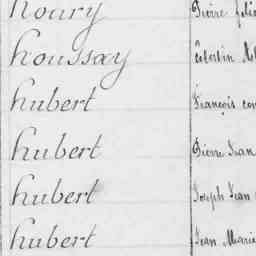 houry Pierre
houssay
hubert François
hubert Pierre Jean
hubert Joseph Jean
hubert Jean Marie